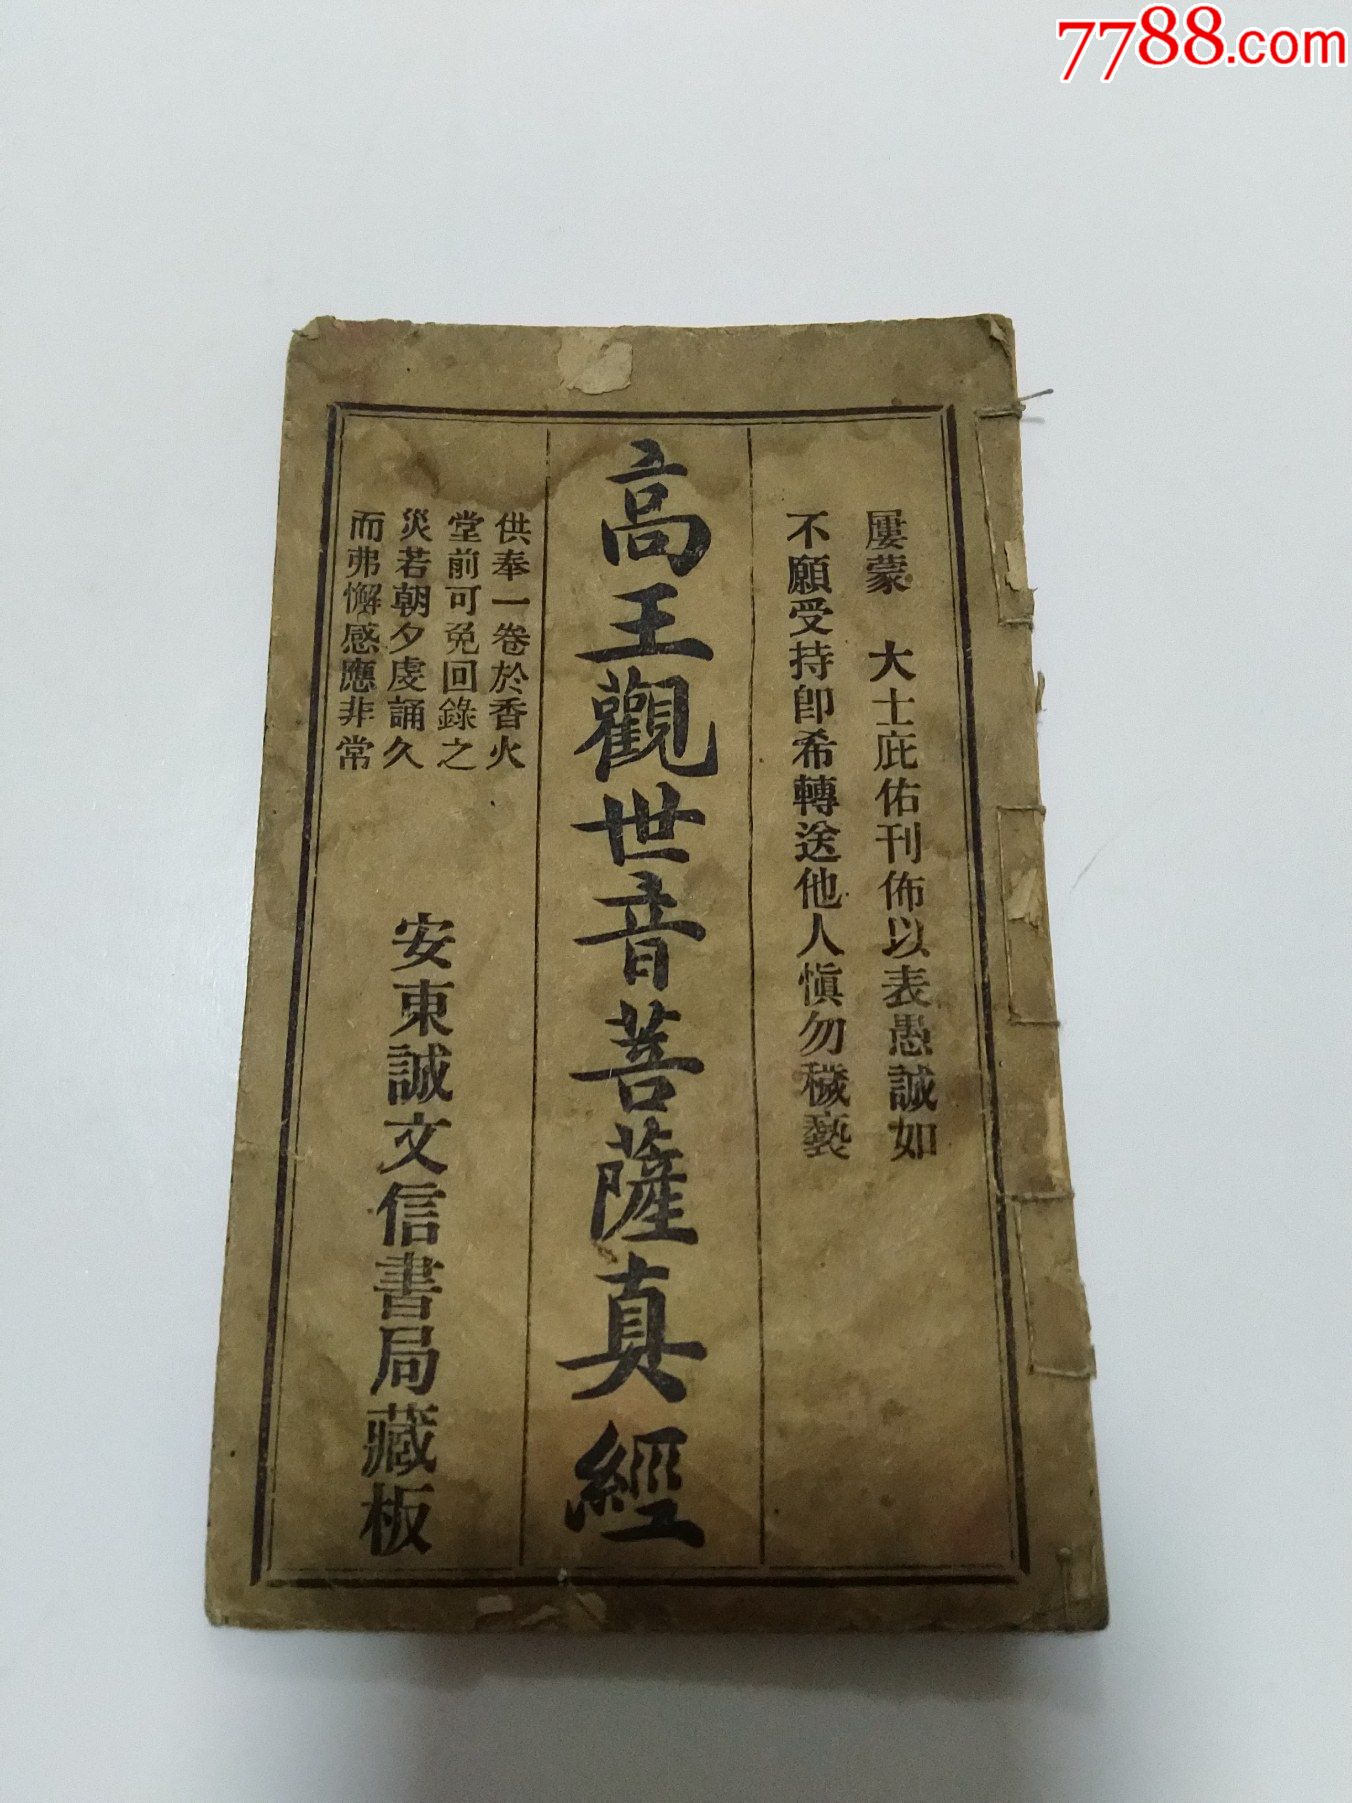 7788.com
屢蒙 大士庇佑刊佈以表愚誠如
不願受持卽希轉送他人慎勿穢褻
高王觀世音菩薩真經
供奉一卷於香火
堂前可免回錄之
災若朝夕虔誦久
而弗懈感應非常
安東誠文信書局藏板